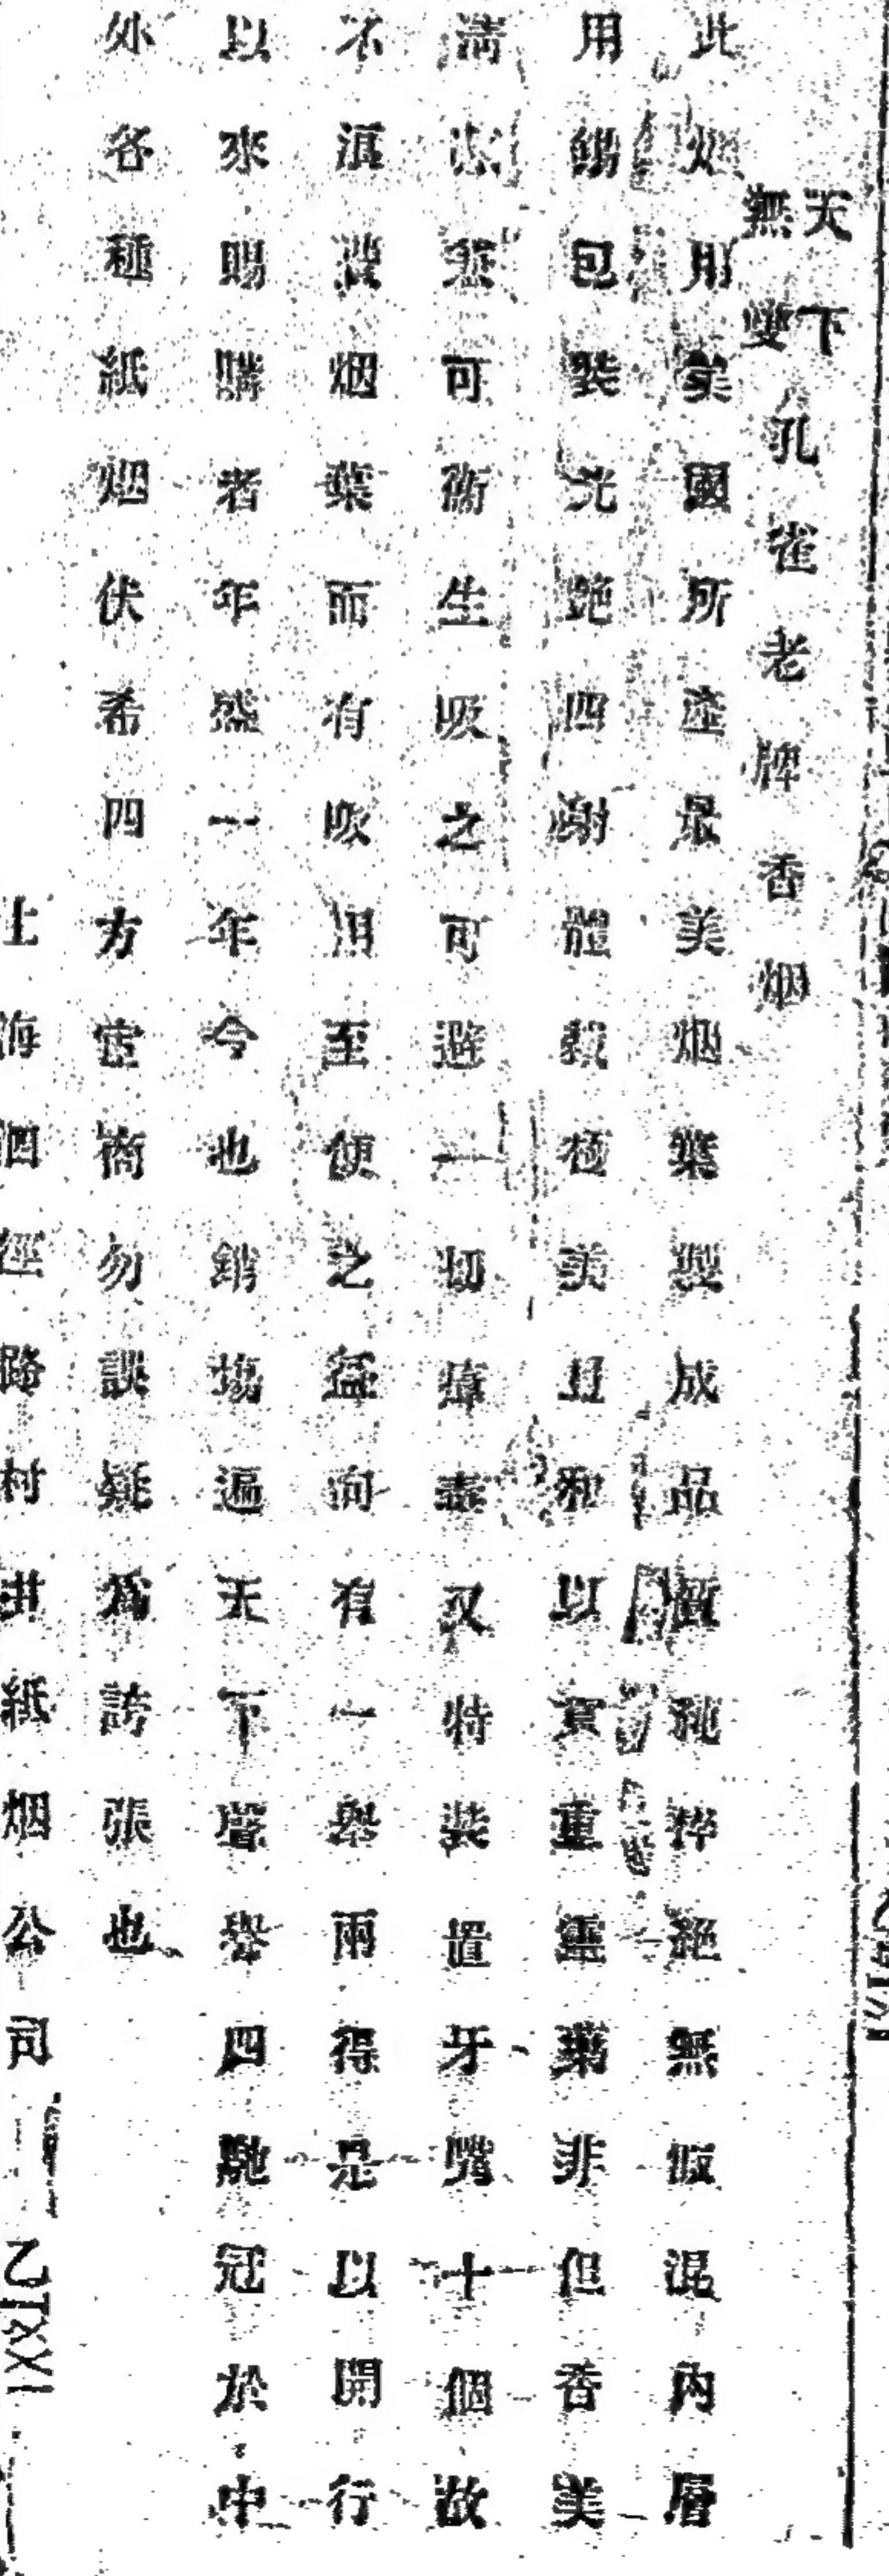 天下
無雙
孔雀老牌香烟
此烟用美國所產最美烟葉製成品質純粹絕無假混內層
用錫包裝光艷四射體裁極美且和以寳重靈藥非但香美
清潔兼可衛生吸之可避一切瘴毒又特裝置牙嘴十個故
不濵費烟葉而有吸用至便之益向有一舉兩得是以開行
以來賜購者年盛一年今也銷塲遍天下聲譽四馳冠於中
外各種紙烟伏希四方官商勿談疑爲誇張也
上海泗涇路村井紙烟公司